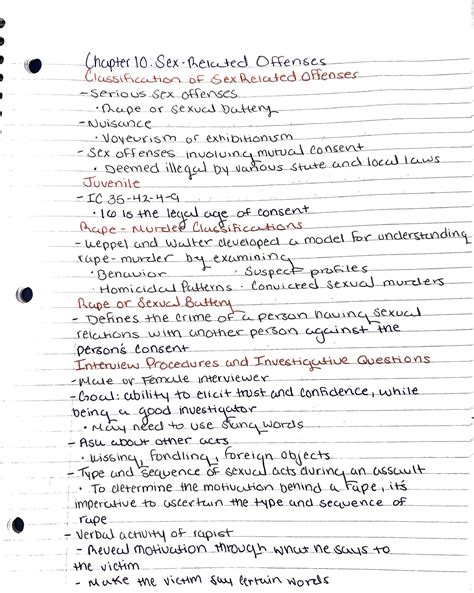 Chapter 10: Sex-Related Offenses
Classification of Sex Related Offenses
- Serious sex offenses
• Rape or sexual battery
- Nuisance
• Voyeurism or exhibitionism
- Sex offenses involving mutual consent
• Deemed illegal by various state and local laws
Juvenile
- IC 35-42-4-9
• 16 is the legal age of consent
Rape - Murder Classifications
- Keppel and Walter developed a model for understanding
rape-murder by examining
• Behavior • Suspect profiles
• Homicidal Patterns • Convicted sexual murders
Rape or Sexual Battery
- Defines the crime of a person having sexual
relations with another person against the
person's consent
Interview Procedures and Investigative Questions
- Male or Female interviewer
- Goal: ability to elicit trust and confidence, while
being a good investigator
• May need to use slang words
- Ask about other acts
• Kissing, fondling, foreign objects
- Type and sequence of sexual acts during an assault
• To determine the motivation behind a rape, it's
imperative to ascertain the type and sequence of
rape
- Verbal activity of rapist
- Reveal motivation through what he says to
the victim
- Make the victim say certain words